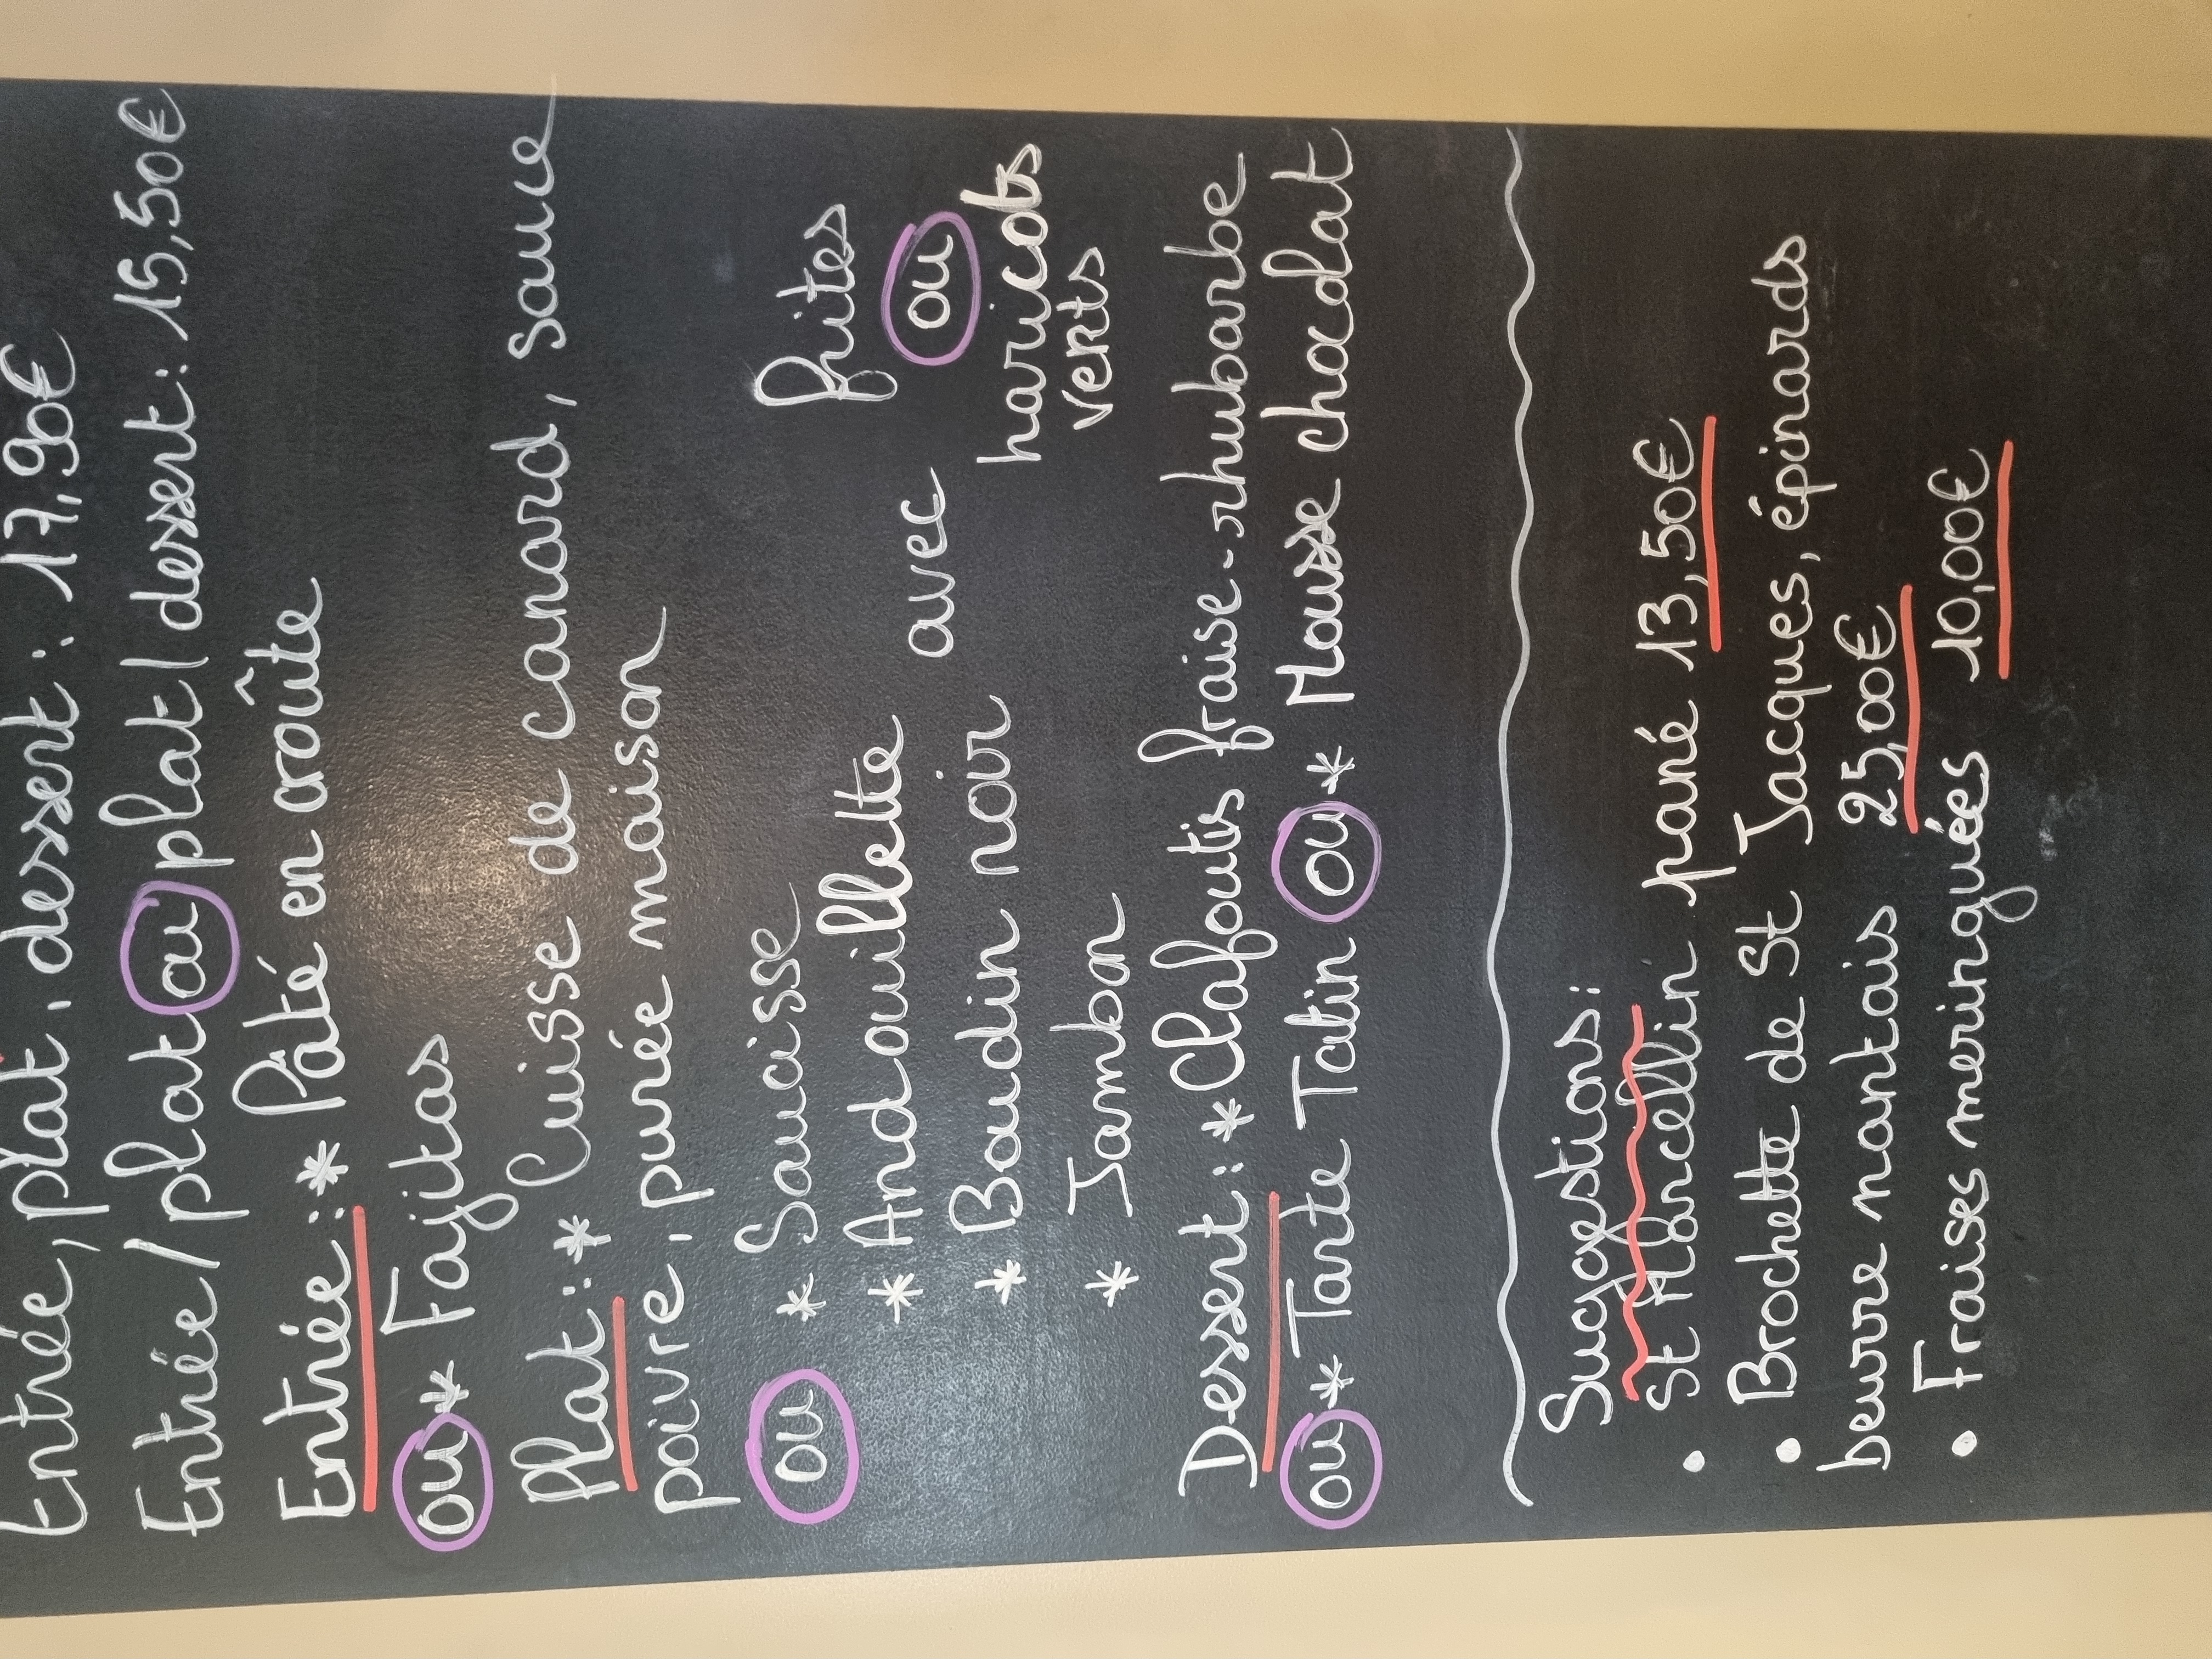 Entrée, plat, dessert : 17,90€
Entrée / plat ou plat / dessert : 15,50€
Entrée : * Pâté en croûte
ou * Fajitas
Plat : * Cuisse de canard, sauce
poivre, purée maison
ou * Saucisse
* Andouillette
* Boudin noir
* Jambon
avec
frites
ou
haricots
verts
Dessert : * Clafoutis fraise-rhubarbe
ou * Tarte Tatin ou * Mousse chocolat
Suggestions :
• St Marcellin pané 13,50€
• Brochette de St Jacques, épinards
beurre nantais 25,00€
• Fraises meringuées 10,00€